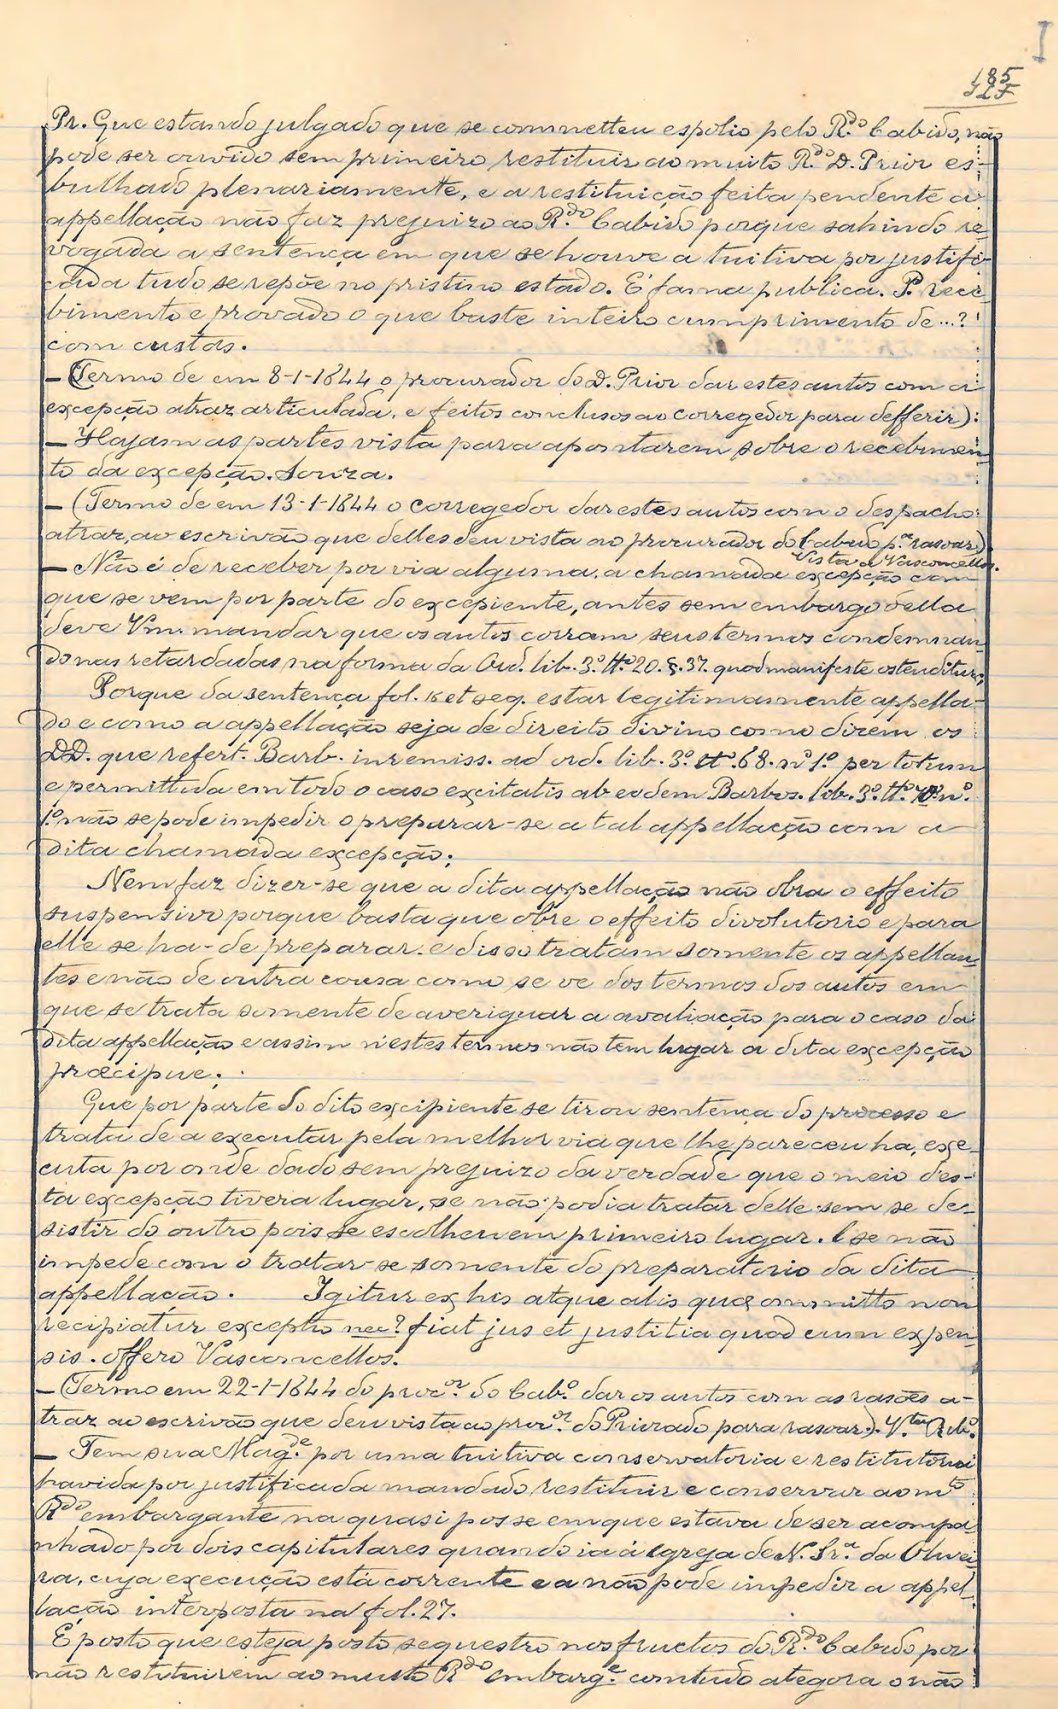 185
Pr. Que estando julgado que se commetteu espolio pelo R.do Cabido, não
pode ser ouvido sem primeiro restituir ao muito R.do D. Prior es-
bulhado plenariamente, e a restituição feita pendente a
appellação não faz prejuizo ao R.do Cabido porque sahindo re-
vogada a sentença em que se houve a tuitiva por justifi-
cada tudo se repõe no pristino estado. E' fama publica. P. rece-
bimento e provado o que baste inteiro cumprimento de ...?
com custas.
– (Termo de em 8-1-1644 o procurador do D. Prior dar estes autos com a
excepção atraz articulada, e feitos conclusos ao corregedor para defferir):
– Hajam as partes vista para apontarem sobre o recebimen-
to da excepção. Souza.
– (Termo de em 13-1-1644 o corregedor dar estes autos com o despacho
atraz, ao escrivão que delles deu vista ao procurador do Cabido p.ª rasoar).
Vista a Vasconcellos.
– Não é de receber por via alguma, a chamada excepção com
que se vem por parte do excepiente, antes sem embargo della
deve Vm. mandar que os autos corram seus termos condemnan-
do nas retardadas na forma da Ord. lib. 3.º tt.º 20. §. 37. quod manifeste ostenditur;
Porque da sentença fol. 15 et seq. estar legitimamente appella-
do e como a appellação seja de direito divino como dizem os
DD. que refert. Barb. in remiss. ad ord. lib. 3.º tt.º 68. nº 1.º per totum
e permittida em todo o caso excitatis ab eodem Barbos. lib. 3.º tt.º 70. n.º
1.º não se pode impedir o preparar-se a tal appellação com a
dita chamada excepção;
Nem faz dizer-se que a dita appellação não obra o effeito
suspensivo porque basta que obre o effeito divolutorio e para
elle se ha-de preparar. e disso tratam somente os appellan-
tes e não de outra cousa como se ve dos termos dos autos em
que se trata somente de averiguar a avaliação para o caso da
dita appellação e assim n'estes termos não tem lugar a dita excepção
præcipue;
Que por parte do dito excipiente se tirou sentença do processo e
trata de a executar pela melhor via que lhe pareceu ha, exe-
cuta por onde dado sem prejuizo da verdade que o meio des-
ta excepção tivera lugar, se não podia tratar delle sem se de-
sistir do outro pois se escolheu em primeiro lugar. E se não
impede com o tratar-se somente do preparatorio da dita
appellação. Igitur ex his atque aliis quæ ommitto non
recipiatur exceptio nec? fiat jus et justitia quod cum expen-
sis. offero Vasconcellos.
– (Termo em 22-1-1644 do proc.or do Cab.º dar os autos com as rasões a-
traz ao escrivão que deu vista ao proc.or do Priorado para rasoar). V.ta Rib.º
– Tem sua Mag.de por uma tuitiva conservatoria e restitutoria
havida por justificada mandado restituir e conservar ao m.to
R.do embargante na quasi posse em que estava de ser acompa-
nhado por dois capitulares quando ia á Igreja de N. Sr.ª da Olivei-
ra, cuja execução está corrente e a não pode impedir a appel-
lação interposta na fol. 27.
E posto que esteja posto sequestro nos fructos do R.do Cabido por
não restituirem ao muito R.do embarg.e comtudo ategora o não